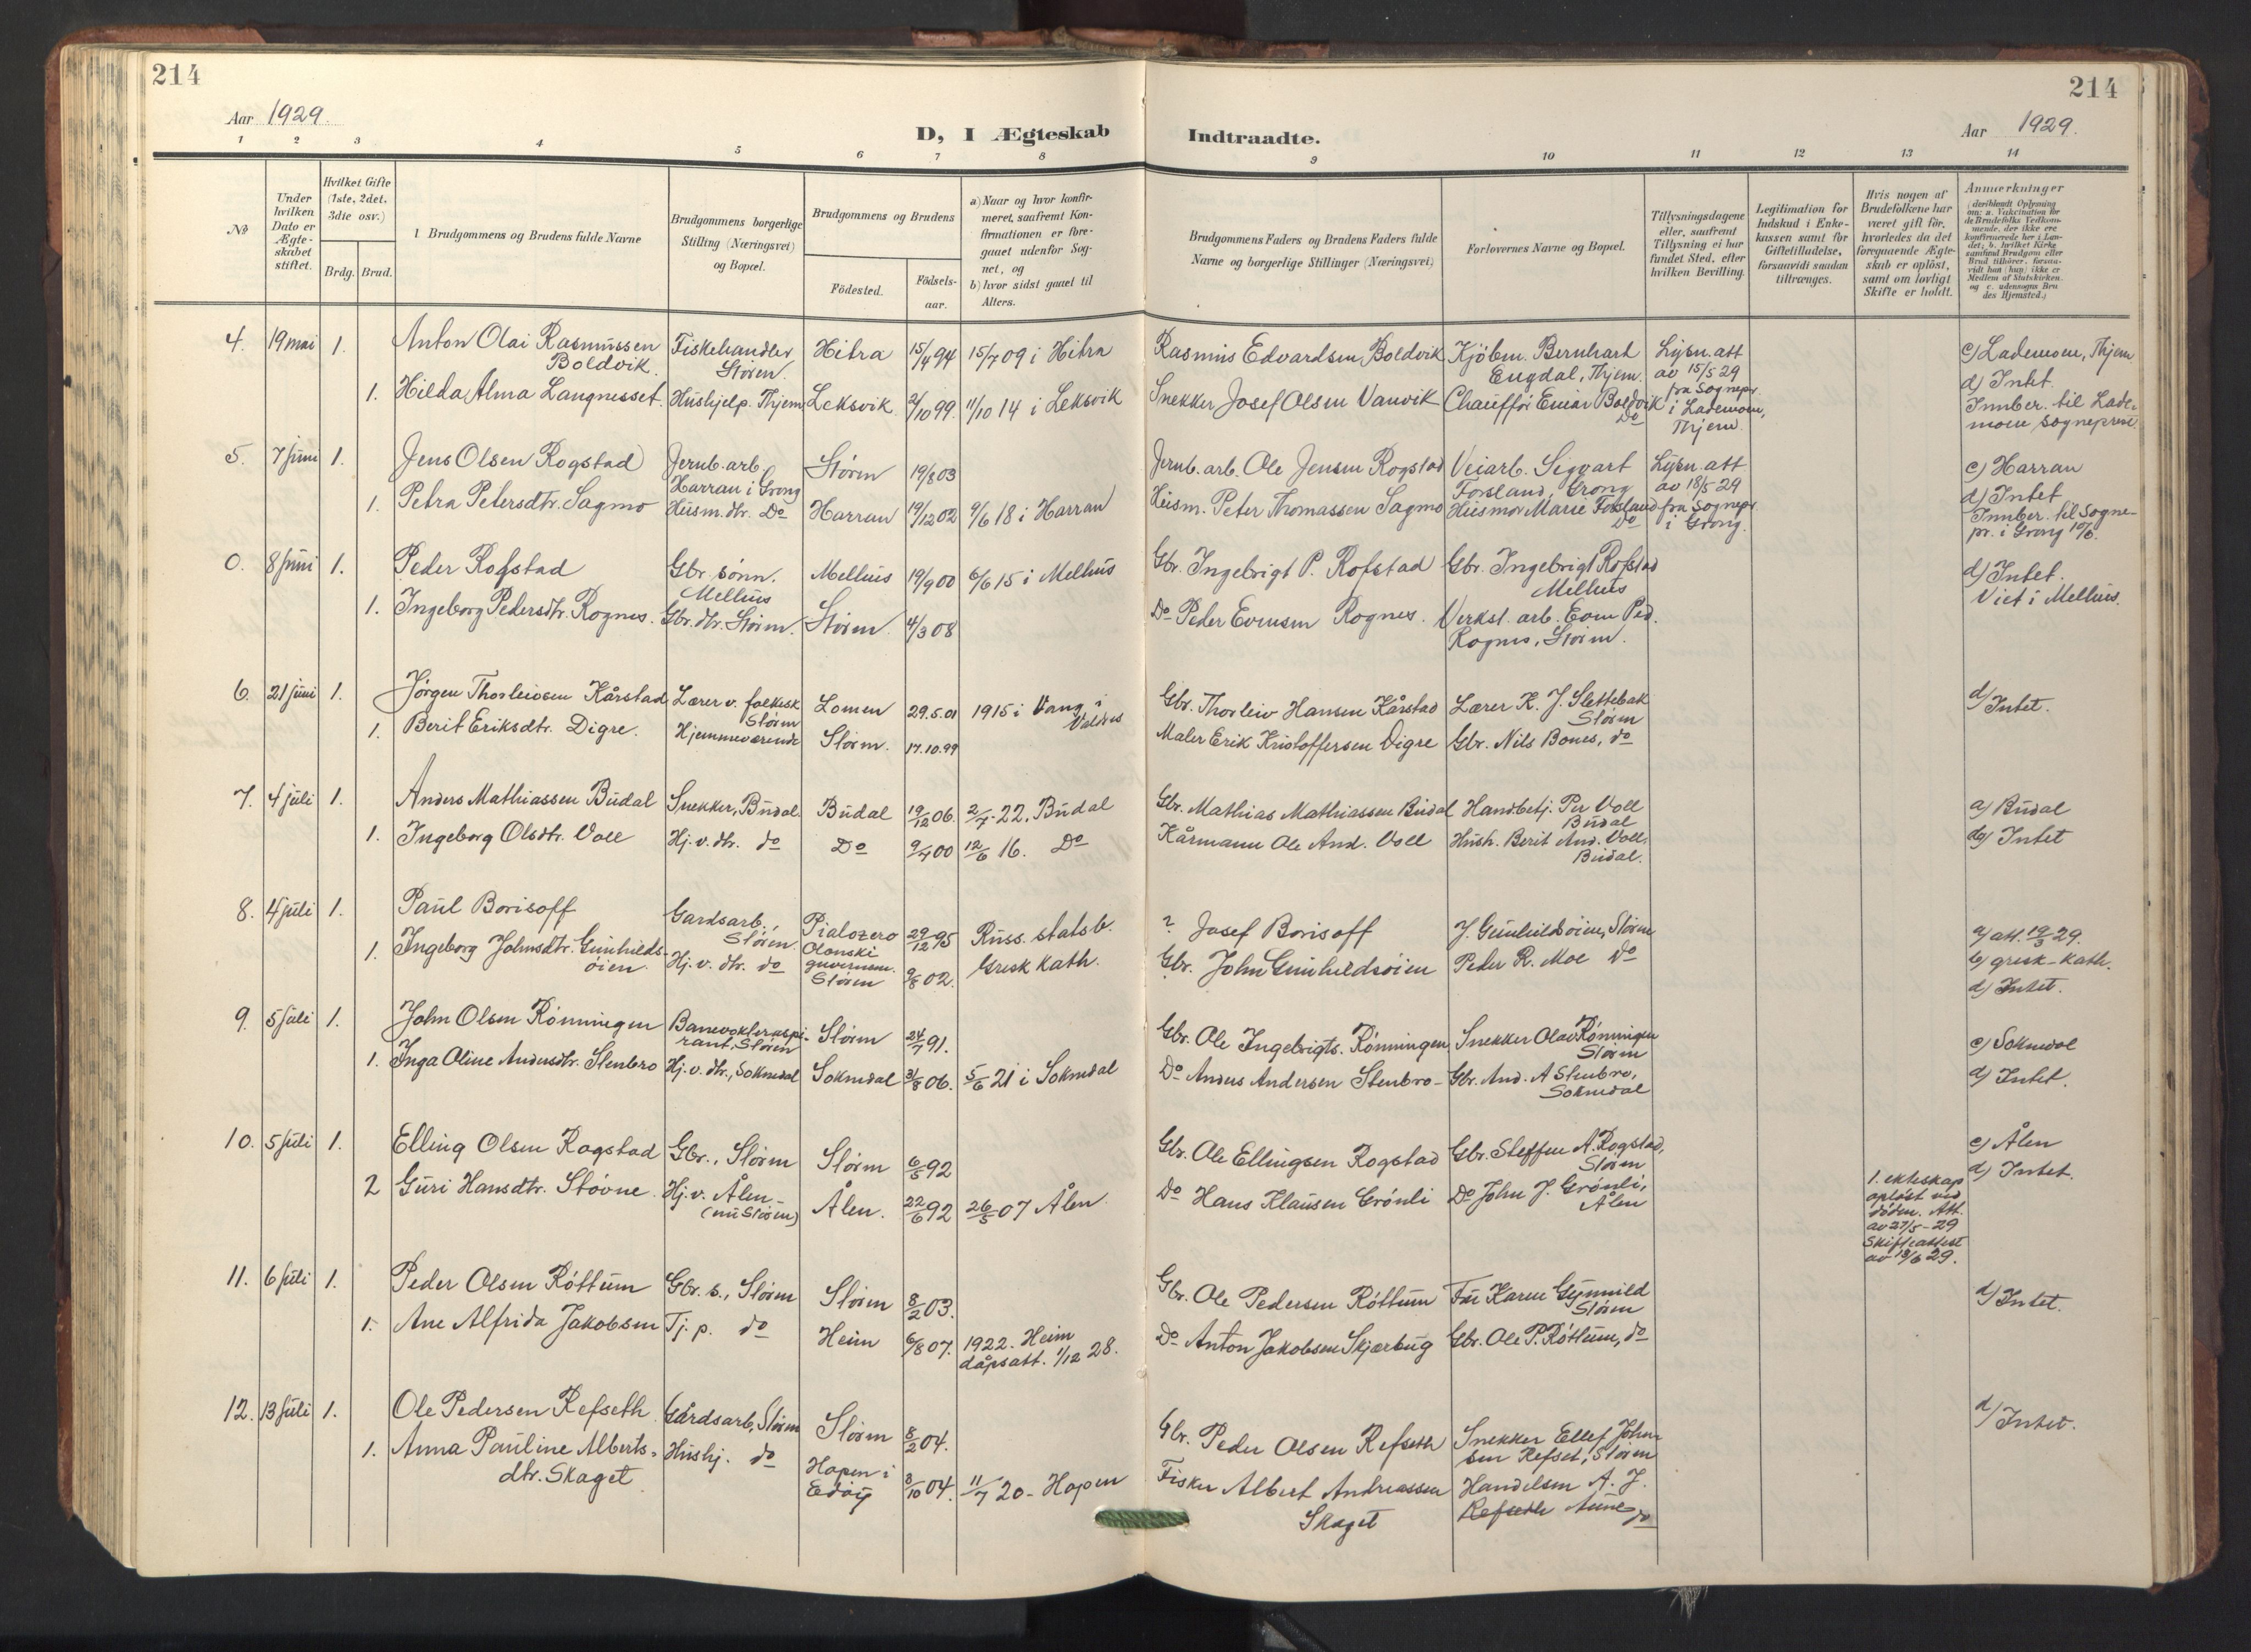 214
214
Aar 1929.
D, I Ægteskab
Indtraadte.
Aar 1929.
1 2 3 4 5 6 7 8
9 10 11 12 13 14
№
Under
hvilken
Dato er
Ægte-
skabet
stiftet.
Hvilket Gifte
(1ste, 2det,
3die osv.)
Brdg. Brud.
Brudgommens og Brudens fulde Navne
Brudgommens borgerlige
Stilling (Næringsvei)
og Bopæl.
Brudgommens og Brudens
Födested.
Födsels-
aar.
a) Naar og hvor konfir-
meret, saafremt Kon-
firmationen er fore-
gaaet udenfor Sog-
net, og
b) hvor sidst gaaet til
Alters.
Brudgommens Faders og Brudens Faders fulde
Navne og borgerlige Stillinger (Næringsvei)
Forlovernes Navne og Bopæl.
Tillysningsdagene
eller, saafremt
Tillysning ei har
fundet Sted, efter
hvilken Bevilling.
Legitimation for
Indskud i Enke-
kassen samt for
Giftetilladelse,
forsaavidt saadan
tiltrænges.
Hvis nogen af
Brudefolkene har
været gift för,
hvorledes da det
foregaaende Ægte-
skab er oplöst,
samt om lovligt
Skifte er holdt.
Anmerkninger
(deriblandt Oplysning
om: a. Vakcination for
de Brudefolks Vedkom-
mende, der ikke ere
konfirmerede her i Lan-
det; b. hvilket Kirke
samfund Brudgom eller
Brud tilhörer, forsaa-
vidt han (hun) ikke er
Medlem af Statskirken.
og c. udensogns Bru
des Hjemsted.)
4. 19 mai 1. Anton Olai Rasmussen
Boldvik.
Fiskehandler
Stören.
Hitra 15/4 94 15/7 09 i Hitra
Rasmus Edvardsen Boldvik
Kjöbm. Bernhart
Engdal, Thjem.
Lysn. att
av 15/5 29
fra Sognepr.
i Lademoen,
Thjem.
c) Lademoen, Thjem
d) Intet.
Innber. til Lade-
moen sogneprest
1. Hilda Alma Langnesset. Hushjelp. Thjem Leksvik 2/10 99. 11/10 14 i Leksvik
Snekker Josef Olsen Vanvik Chaufför Einar Boldvik
Do
5. 7 juni 1. Jens Olsen Rogstad
Jernb. arb.
Harran i Grong
Stören 19/8 03
Jernb. arb. Ole Jensen Rogstad
Veiarb. Sigvart
Forsland, Grong
Lysn. att
av 18/5 29
fra Sognepr.
i Grong.
c) Harran
d) Intet
Innber. til Sogne-
pr. i Grong 10/6.
1. Petra Petersdtr. Sagmo Husm.dtr. Do Harran 19/12 02 9/6 18 i Harran
Husm. Peter Thomassen Sagmo Husmor Marie Forsland
Do
0. 8 juni 1. Peder Rofstad
Gbr sönn.
Melhus
Melhus 19/9 00 6/6 15 i Melhus
Gbr. Ingebrigt P. Rofstad
Gbr. Ingebrigt Rofstad
Melhus
d) Intet.
Viet i Melhus.
1. Ingeborg Pedersdtr. Rognes. Gbr. dtr. Stören. Stören. 4/3 08
Do Peder Evensen Rognes.
Verkst. arb. Even Ped.
Rognes, Stören.
6. 21 juni 1. Jörgen Thorleivsen Kårstad
Lærer v. folkesk
Stören
Lomen 29.5.01 1915 i Vang i
Valdres
Gbr. Thorleiv Hansen Kårstad
Lærer K. J. Slettebak
Stören
d) Intet.
1. Berit Eriksdtr. Digre. Hjemmeværende Stören. 17.10.99
Maler Erik Kristoffersen Digre Gbr. Nils Bones, do
7. 4 juli 1. Anders Mathiassen Budal Snekker, Budal. Budal 19/12 06. 2/7 - 22. Budal
Gbr. Mathias Mathiassen Budal Handbetj. Per Voll
Budal
a) Budal
d) Intet
1. Ingeborg Olsdtr. Voll Hj. v. dtr. do Do 9/7 00 12/6 16. Do
Kårmann Ole And. Voll Hush. Berit And. Voll.
Budal.
8. 4 juli 1. Paul Borisoff
Gardsarb.,
Stören.
Pialozero
Olonski
guvernem.
29/12 95 Russ. statsb.
Gresk Kath.
? Josef Borisoff J. Gunhildsöien, Stören
a) att. 19/3 29.
b) gresk-kath.
d) Intet.
1. Ingeborg Johnsdtr. Gunhilds-
öien. Hj. v. dtr. do Stören 9/8 02.
Gbr. John Gunhildsöien Peder R. Moe Do
9. 5 juli 1. John Olsen Rönningen
Banevokteraspi-
rant, Stören
Stören 24/7 91.
Gbr. Ole Ingebrigts. Rönningen, Snekker Olav Rönningen
Stören
c) Soknedal
d) Intet.
1. Inga Oline Andersdtr. Stenbro Hj. v. dtr., Soknedal Soknedal 31/8 06. 5/6 21 i Soknedal
Do Anders Andersen Stenbro - Gbr. And. A Stenbro,
Soknedal
10. 5 juli 1. Elling Olsen Rogstad Gbr., Stören Stören 6/5 92
Gbr. Ole Ellingsen Rogstad Gbr. Steffen A. Rogstad,
Stören
c) Ålen
d) Intet.
2 Guri Hansdtr. Stövne. Hj. v. Ålen -
(nu Stören) Ålen. 22/6 92 26/5 07 Ålen
Do Hans Klausen Grönli Do John J. Grönli,
Ålen
1. ekteskap
oplöst ved
döden. Att.
av 27/5 - 29
Skifteattest
av 18/6 29.
11. 6 juli 1. Peder Olsen Röttum Gbr. s., Stören Stören 8/2 03.
Gbr. Ole Pedersen Röttum Fru Karen Gynnild
Stören
d) Intet.
1. Ane Alfrida Jakobsen Tj. p. do Heim 6/8 07. 1922. Heim
dåpsatt. 1/12 28.
Do Anton Jakobsen Skjærbug Gbr. Ole P. Röttum, do
12. 13 juli 1. Ole Pedersen Refseth Gårdsarb, Stören Stören 8/2 04.
Gbr. Peder Olsen Refseth Snekker Ellef John-
sen Refset, Stören
d) Intet.
1. Anna Pauline Alberts-
dtr. Skaget Hushj. do
Hopen i
Edöy
3/10 04. 11/7 20 - Hopen
Fisker Albert Andreassen
Skaget
Handelsm A. J.
Refseth Aune do